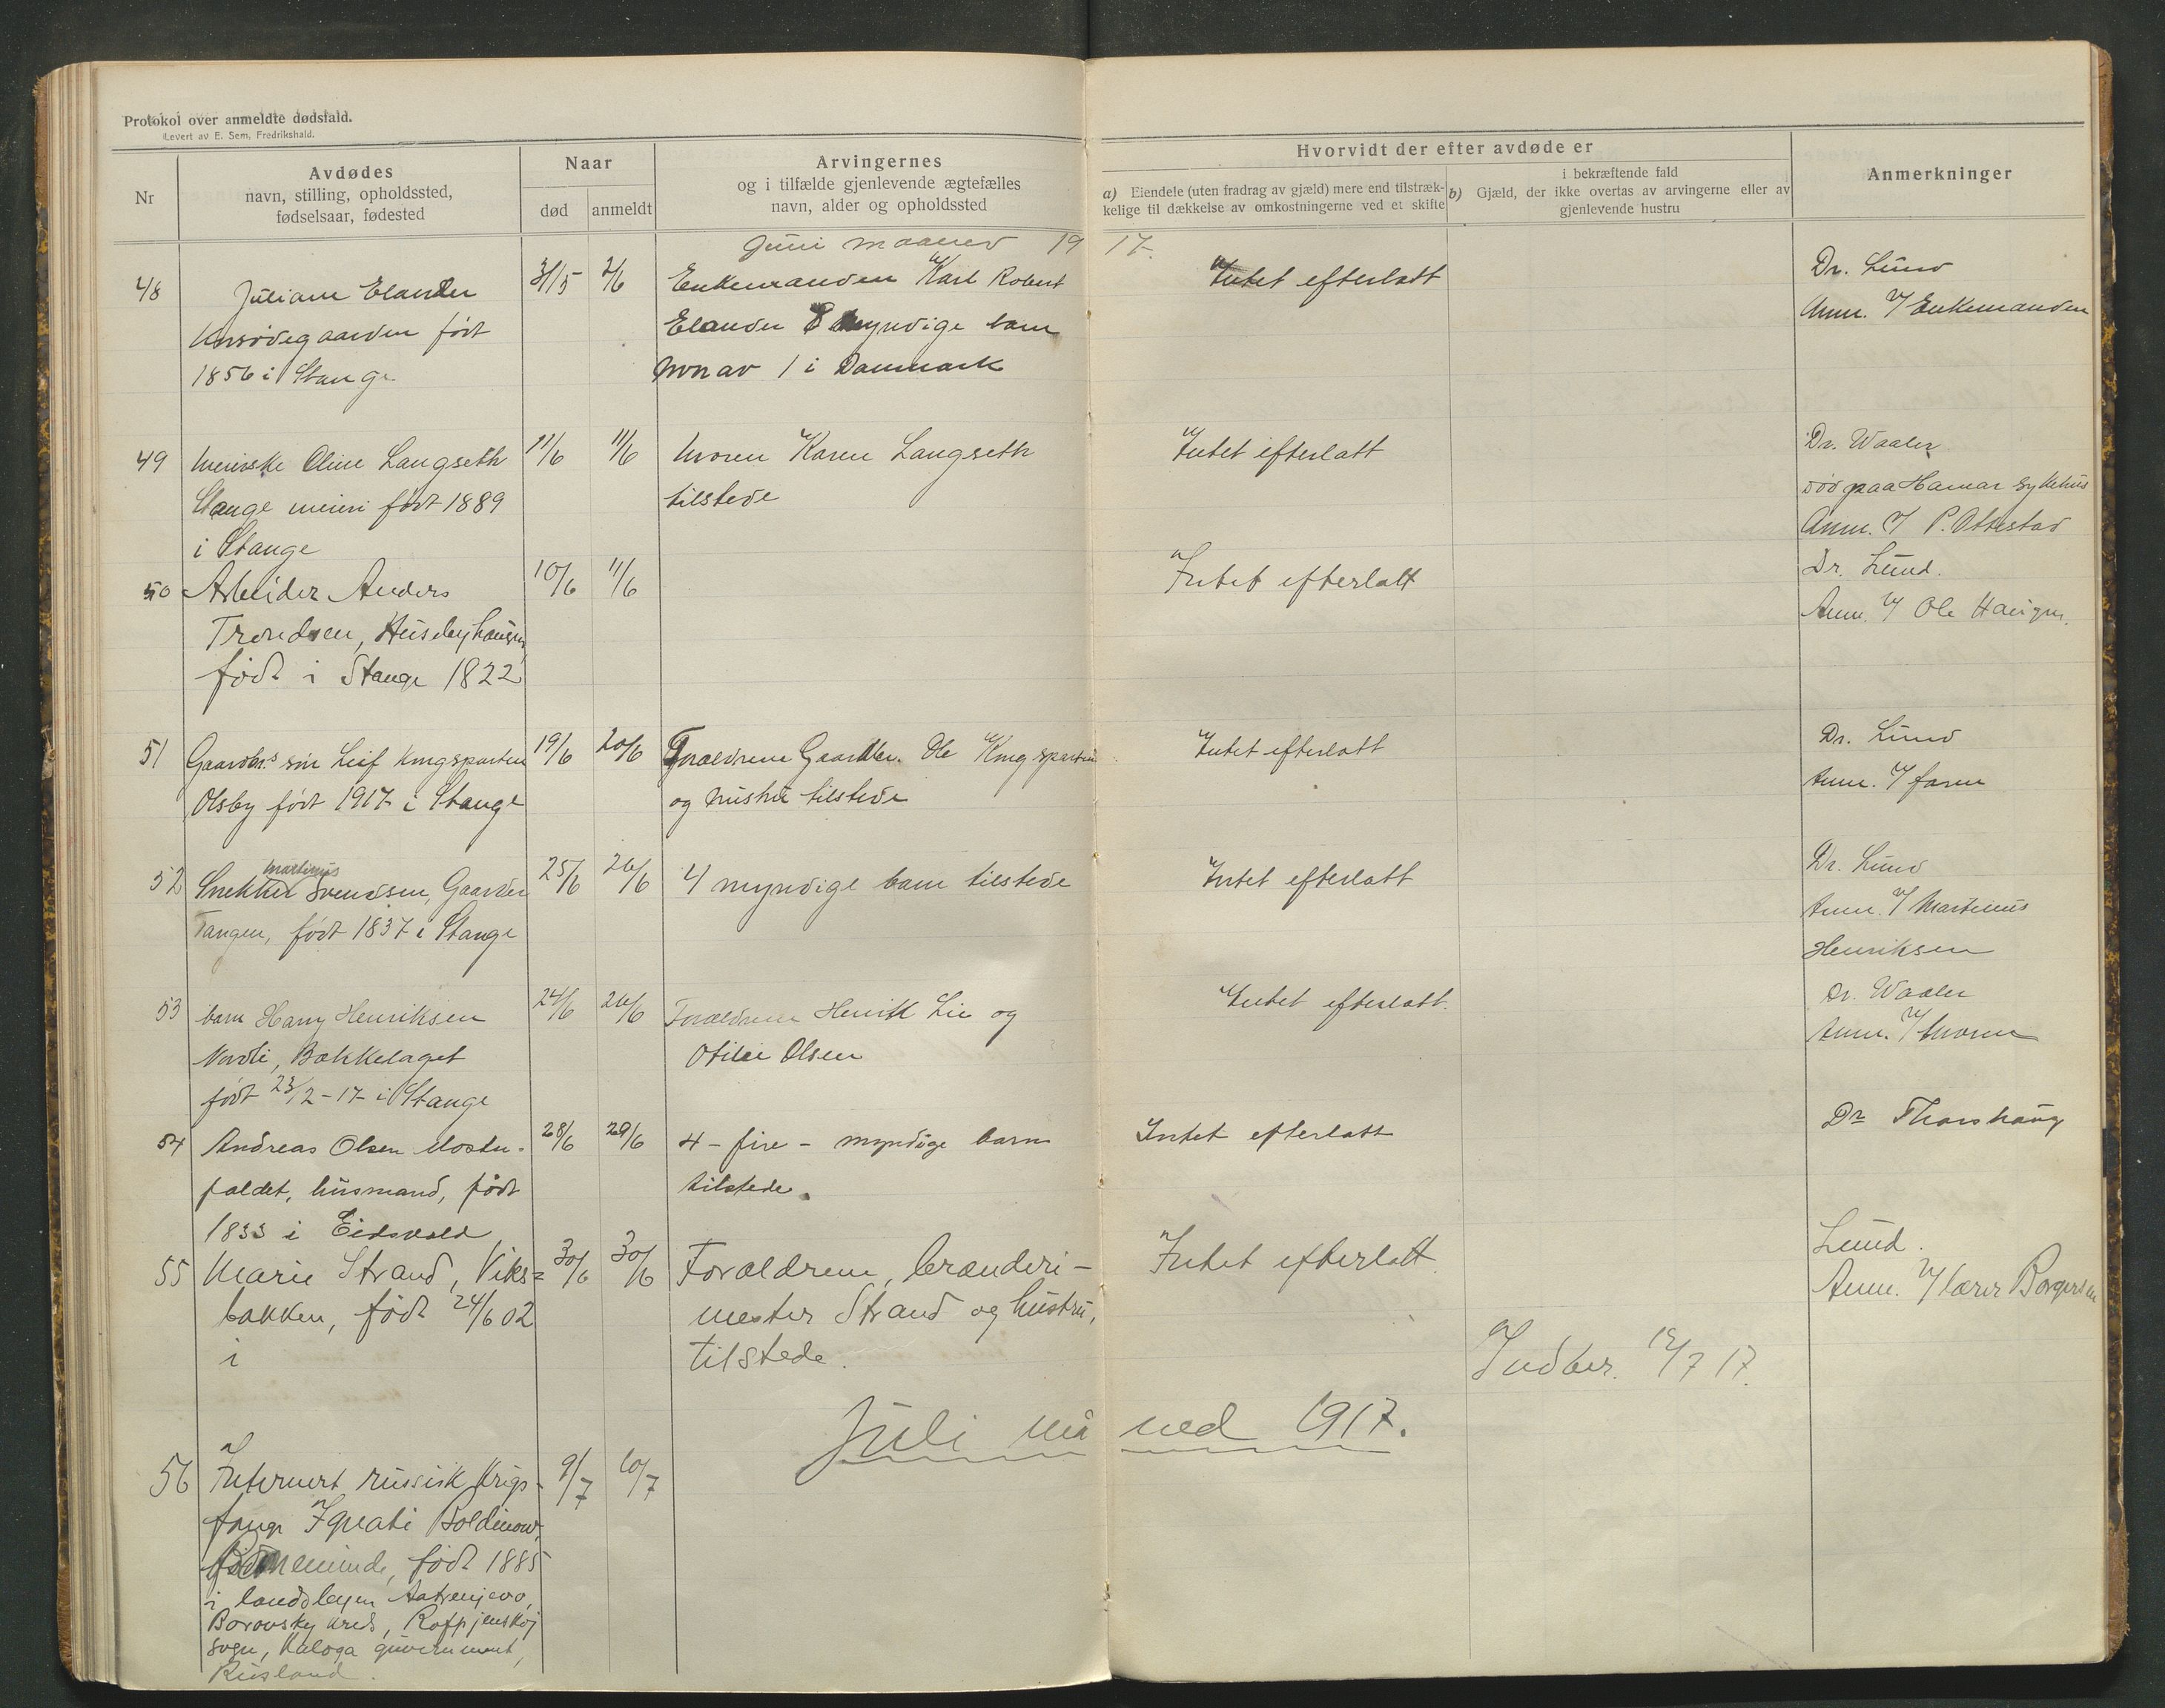 Protokol over anmeldte dødsfald.
Levert av E. Sem, Fredrikshald.
Nr
Avdødes
navn, stilling, opholdssted,
fødselsaar, fødested
Naar
død
anmeldt
Arvingernes
og i tilfælde gjenlevende ægtefælles
navn, alder og opholdssted
Hvorvidt der efter avdøde er
a) Eiendele (uten fradrag av gjæld) mere end tilstræk-
kelige til dækkelse av omkostningerne ved et skifte
i bekræftende fald
b) Gjæld, der ikke overtas av arvingerne eller av
gjenlevende hustru
Anmerkninger
Juni maaned 1917.
48
Juliane Elander
født
1856 i Stange
31/5
2/6
Enkemanden Karl Robert
Elander 8 myndige barn
hvorav 1 i Danmark
Intet efterlatt
Dr. Lund
Anm. v/ Enkemanden
49
Meierske Oline Langseth
Stange meieri født 1889
i Stange
11/6
11/6
Moren Karen Langseth
tilstede
Intet efterlatt
Dr. Waaler
død paa Hamar sykehus
Anm. v/ P. Ottestad
50
Arbeider Anders
Trondsen, Husebyhaugen,
født i Stange 1822
10/6
11/6
Intet efterlatt
Dr. Lund.
Anm. v/ Ole Haugen.
51
Gaardbr.s søn Leif Kongsparten
Olsby født 1917 i Stange
19/6
20/6
Forældrene Gaardbr. Ole Kongsparten
og hustru tilstede
Intet efterlatt
Dr. Lund
Anm. v/ faren
52
Martinus
Snekker Svendsen, Gaarder
Tangen, født 1837 i Stange
25/6
26/6
4 myndige barn tilstede
Intet efterlatt
Dr. Lund
Anm. v/ Martinus
Henriksen
53
barn Harry Henriksen
Nordli, Bækkelaget
født 23/2-17 i Stange
24/6
26/6
Forældrene Henrik Lie og
Otilie Olsen
Intet efterlatt.
Dr. Waaler
Anm. v/ moren
54
Andreas Olsen Mostu-
faldet, husmand, født
1833 i Eidsvold
28/6
29/6
4 - fire - myndige barn
tilstede.
Intet efterlatt
Dr Thorshaug
55
Marie Strand, Viks=
bakken, født 24/6 02
i
30/6
30/6
Forældrene, brænderi-
mester Strand og hustru,
tilstede.
Intet efterlatt.
Lund.
Anm. v/ lærer Borgersen
Indber. 12/7 17.
Juli måned 1917.
56
Internert russisk krigs-
fange Ignati Boldinow,
født 1885
i landsbyen
Borovsky kreds,
sogn, Kaloga guvernement,
Rusland.
9/7
10/7